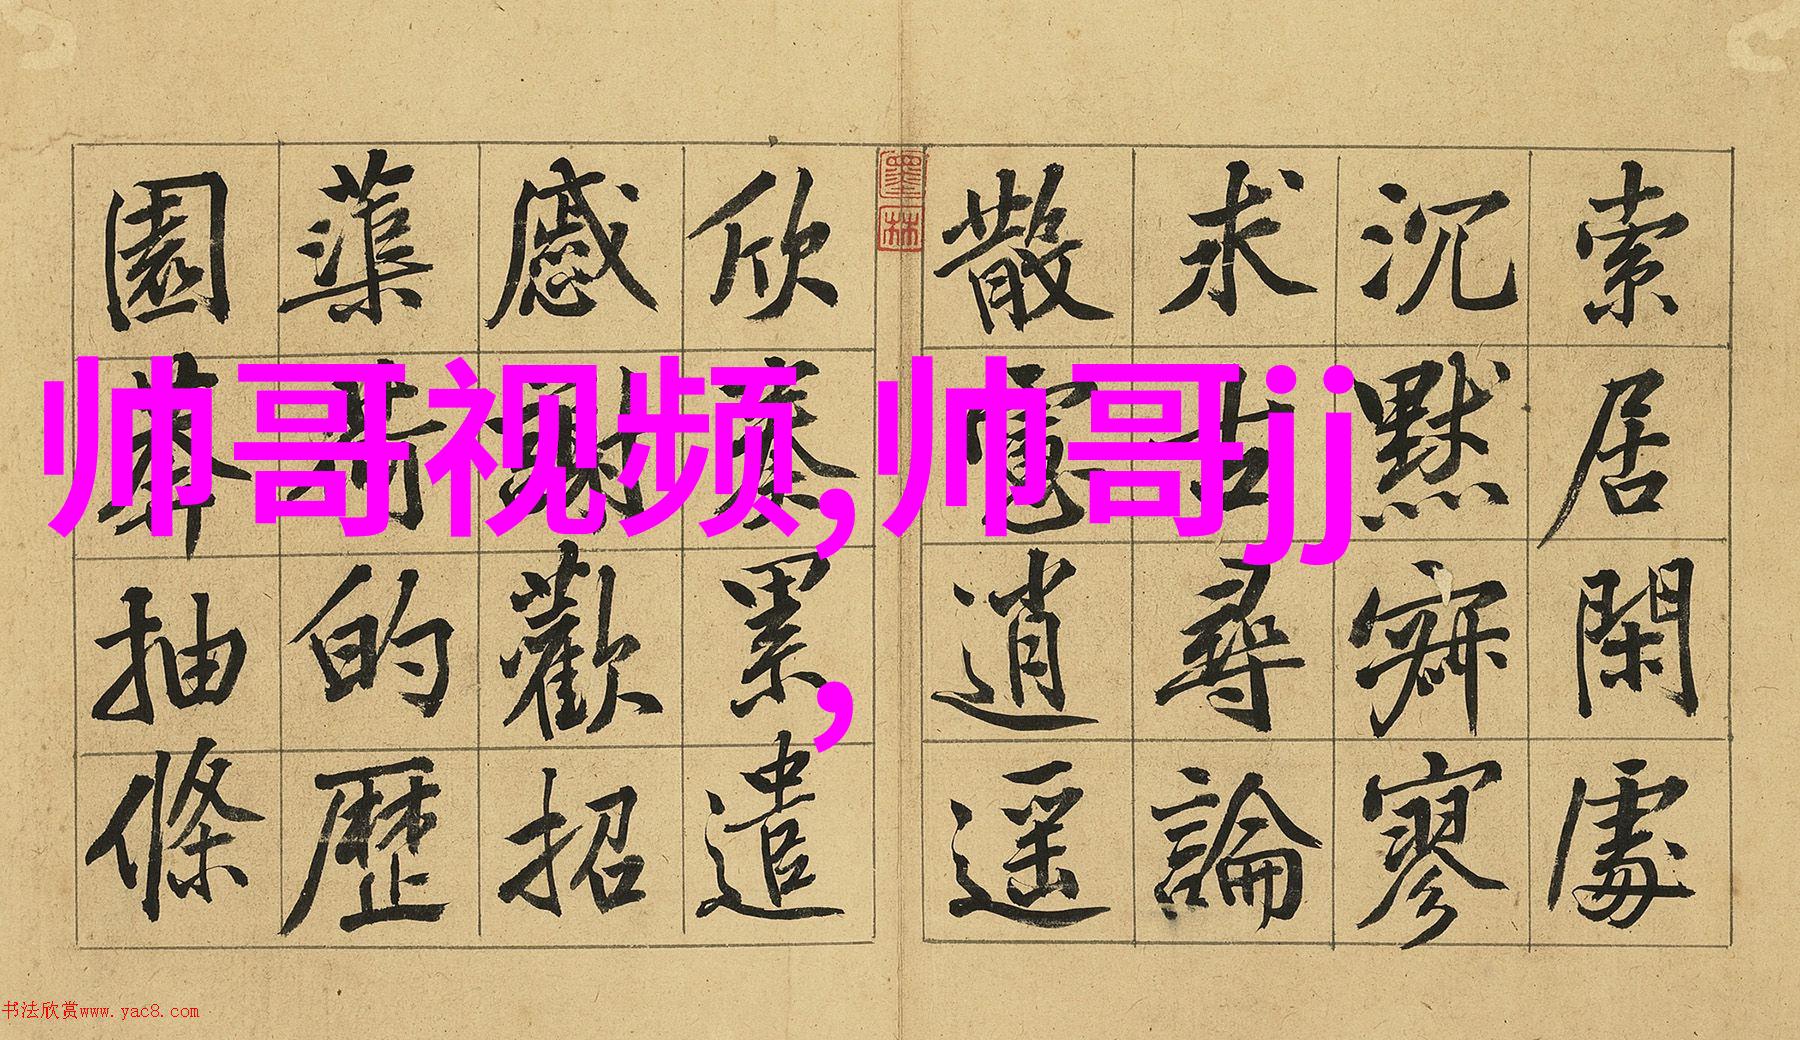 索居閑處
沉黙寂寥
求古尋論
散慮逍遥
欣奏累遣
慼謝歡招
蕖荷的歷
園莽抽條
墨林
帅哥视频,帅哥jj
,
书法欣赏www.yac8.com